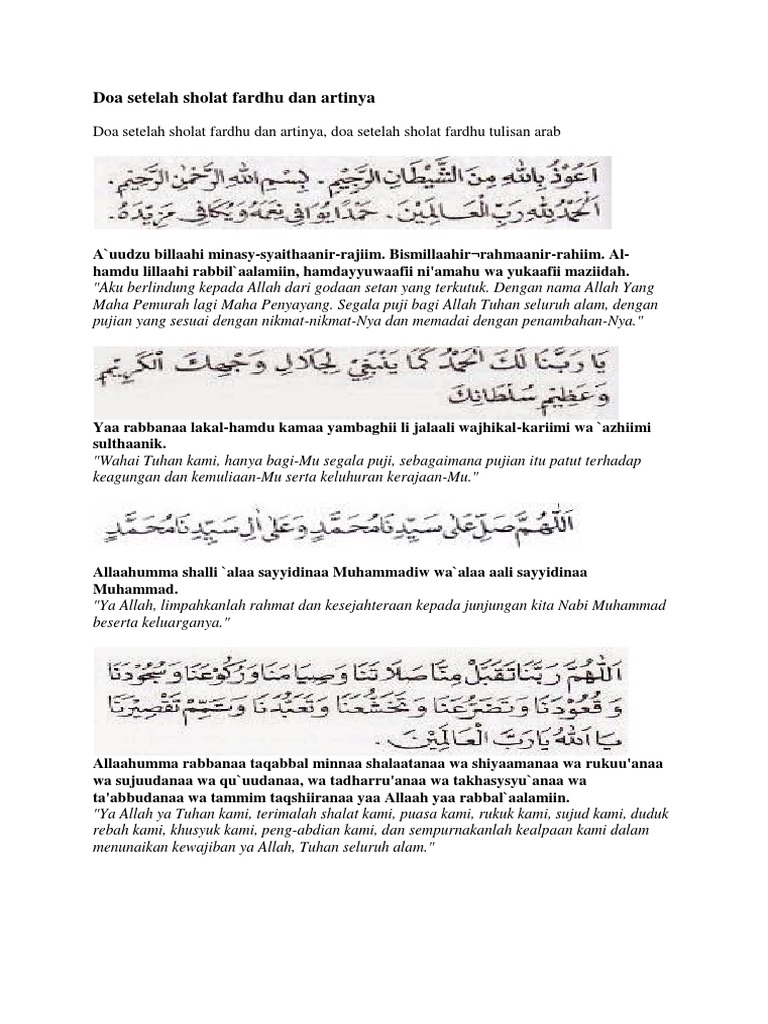 Doa setelah sholat fardhu dan artinya
Doa setelah sholat fardhu dan artinya, doa setelah sholat fardhu tulisan arab
اَعُوْذُ بِاللهِ مِنَ الشَّيْطَانِ الرَّجِيْمِ. بِسْمِ اللهِ الرَّحْمٰنِ الرَّحِيْمِ.
اَلْحَمْدُ لِلّٰهِ رَبِّ الْعَالَمِيْنَ. حَمْدًا يُوَافِيْ نِعَمَهُ وَيُكَافِيْ مَزِيْدَهُ.
A`uudzu billaahi minasy-syaithaanir-rajiim. Bismillaahir¬rahmaanir-rahiim. Al-
hamdu lillaahi rabbil`aalamiin, hamdayyuwaafii ni'amahu wa yukaafii maziidah.
"Aku berlindung kepada Allah dari godaan setan yang terkutuk. Dengan nama Allah Yang
Maha Pemurah lagi Maha Penyayang. Segala puji bagi Allah Tuhan seluruh alam, dengan
pujian yang sesuai dengan nikmat-nikmat-Nya dan memadai dengan penambahan-Nya."
يَا رَبَّنَا لَكَ الْحَمْدُ كَمَا يَنْبَغِيْ لِجَلَالِ وَجْهِكَ الْكَرِيْمِ
وَعَظِيْمِ سُلْطَانِكَ
Yaa rabbanaa lakal-hamdu kamaa yambaghii li jalaali wajhikal-kariimi wa `azhiimi
sulthaanik.
"Wahai Tuhan kami, hanya bagi-Mu segala puji, sebagaimana pujian itu patut terhadap
keagungan dan kemuliaan-Mu serta keluhuran kerajaan-Mu."
اَللّٰهُمَّ صَلِّ عَلٰى سَيِّدِنَا مُحَمَّدٍ وَعَلٰى اٰلِ سَيِّدِنَا مُحَمَّدٍ
Allaahumma shalli `alaa sayyidinaa Muhammadiw wa`alaa aali sayyidinaa
Muhammad.
"Ya Allah, limpahkanlah rahmat dan kesejahteraan kepada junjungan kita Nabi Muhammad
beserta keluarganya."
اَللّٰهُمَّ رَبَّنَا تَقَبَّلْ مِنَّا صَلَاتَنَا وَصِيَامَنَا وَرُكُوْعَنَا وَسُجُوْدَنَا
وَقُعُوْدَنَا وَتَضَرُّعَنَا وَتَخَشُّعَنَا وَتَعَبُّدَنَا وَتَمِّمْ تَقْصِيْرَنَا
يَا اَللهُ يَا رَبَّ الْعَالَمِيْنَ.
Allaahumma rabbanaa taqabbal minnaa shalaatanaa wa shiyaamanaa wa rukuu'anaa
wa sujuudanaa wa qu`uudanaa, wa tadharru'anaa wa takhasysyu`anaa wa
ta'abbudanaa wa tammim taqshiiranaa yaa Allaah yaa rabbal`aalamiin.
"Ya Allah ya Tuhan kami, terimalah shalat kami, puasa kami, rukuk kami, sujud kami, duduk
rebah kami, khusyuk kami, peng-abdian kami, dan sempurnakanlah kealpaan kami dalam
menunaikan kewajiban ya Allah, Tuhan seluruh alam."